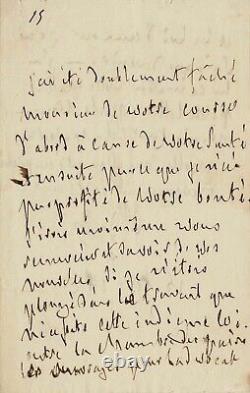 15
j'ai été doublement fâché
monsieur de votre course
d'abord à cause de votre santé
ensuite parce que je n'ai
pas profité de votre bonté.
j'irois moi même vous
remercier et savoir de vos
nouvelles, si je n'étois
plongé dans le travail que
cette indigne loi
contre la
les ouvrages
© eBay